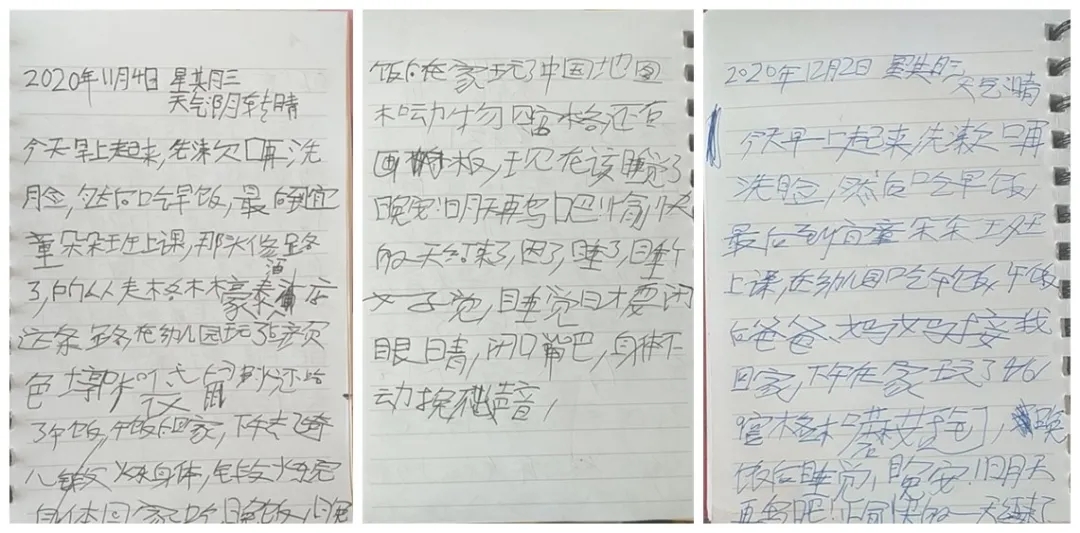 2020年11月4日 星期三
天气阴转晴
今天早上起来,先漱口再洗
脸,然后吃早饭,最后到宜
童朵朵班上课,那头修路
了,所以走格林豪泰酒店
这条路在幼儿园玩了5颜色
色 土 鼠 还吃
了午饭,午饭后回家,下午去
儿 锻炼身体,锻炼完
身体回家吃晚饭,晚
饭后在家玩了中国地图
和动物 格还有
画 板,现在该睡觉了
晚安!明天再写吧!愉快
的一天结束了,困了,睡了,睡个
好觉,睡觉时要闭
眼睛,闭口嘴巴,身体不
动 声音,
2020年12月2日 星期三
天气晴
今天早上起来,先漱口再
洗脸,然后吃早饭,
最后到宜童朵朵班
上课,在幼儿园吃午饭,午饭
后爸爸、妈妈接我
回家,下午在家玩了46
格和 ,晚
饭后睡觉,晚安!明天
再写吧!愉快的一天结束了